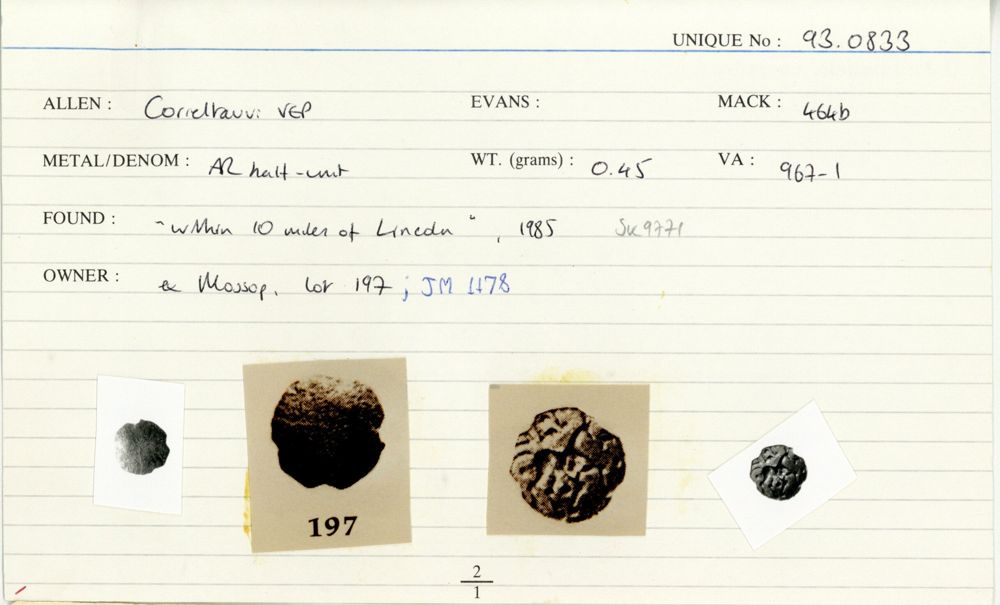 UNIQUE No : 93.0833
ALLEN : Corieltauvi VEP EVANS : MACK : 464b
METAL/DENOM : AR half-unit WT. (grams) : 0.45 VA : 967-1
FOUND : "within 10 miles of Lincoln", 1985 SK 9771
OWNER : ex Mossop, lot 197 ; JM 1178
197
2
1